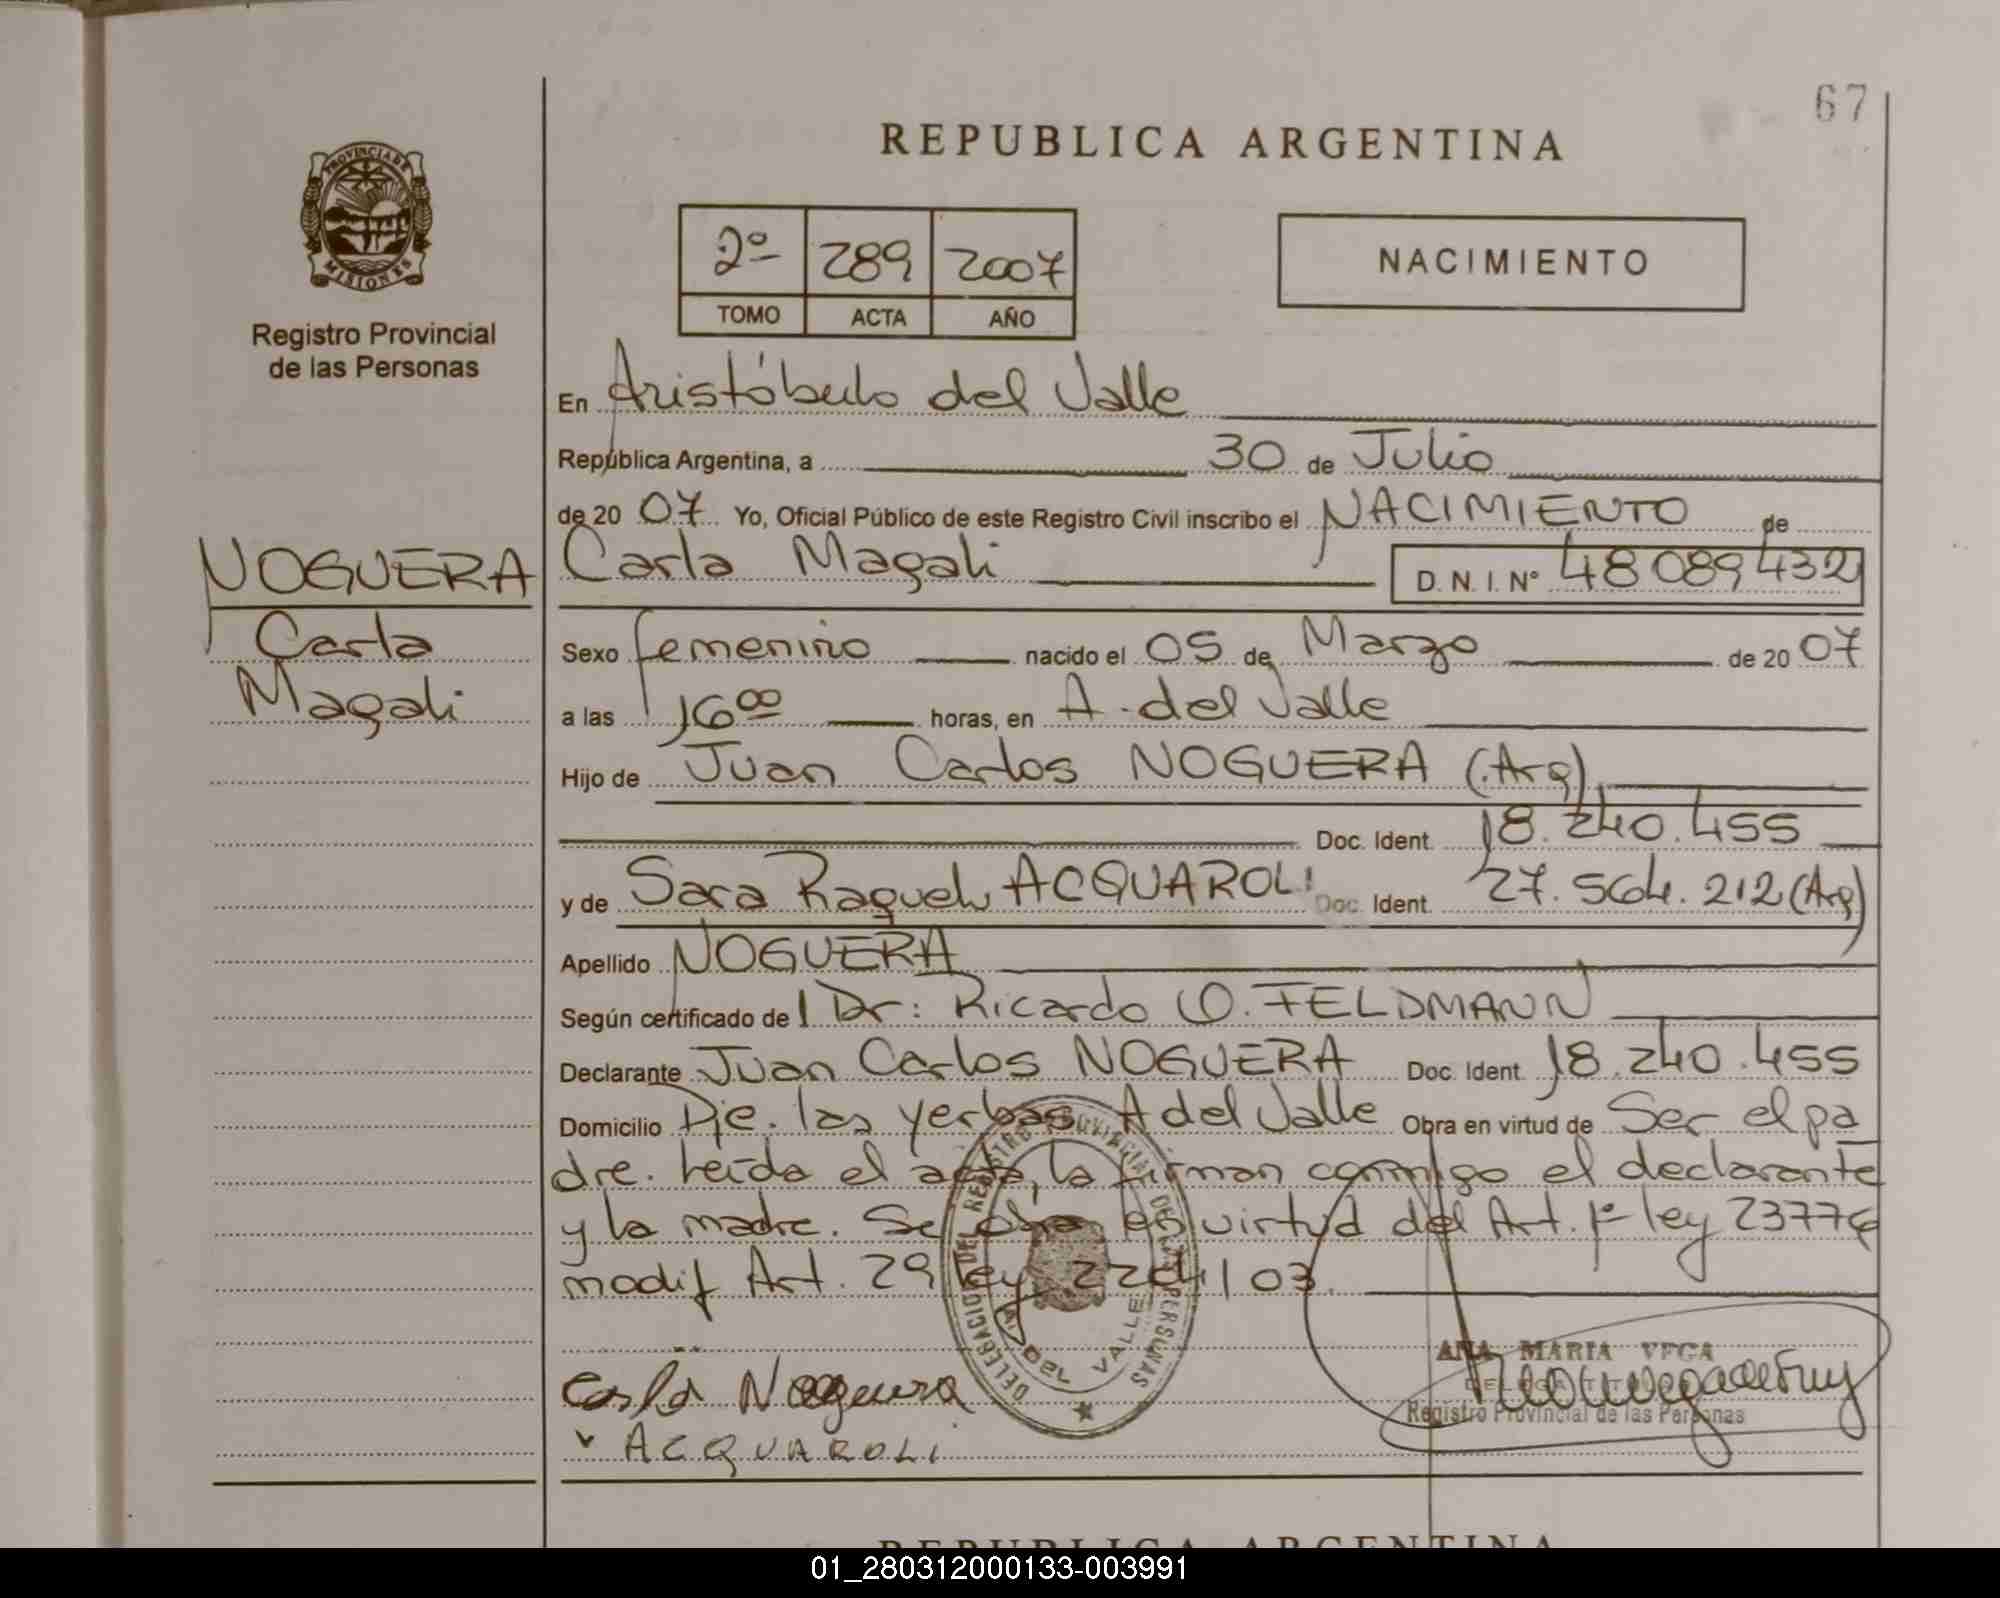 67
REPUBLICA ARGENTINA
PROVINCIA DE
MISIONES
Registro Provincial
de las Personas
2º 289 2007
TOMO ACTA AÑO
NACIMIENTO
En Aristóbulo del Valle
República Argentina, a 30 de Julio
de 20 07 Yo, Oficial Público de este Registro Civil inscribo el NACIMIENTO de
NOGUERA
Carla
Magali
Carla Magali D. N. I. Nº 48089432
Sexo femenino nacido el 05 de Marzo de 20 07
a las 16 00 horas, en A. del Valle
Hijo de Juan Carlos NOGUERA (Arg)
Doc. Ident. 18.240.455
y de Sara Raquel ACQUAROLI Doc. Ident. 27.564.212 (Arg)
Apellido NOGUERA
Según certificado de l Dr: Ricardo O. FELDMANN
Declarante Juan Carlos NOGUERA Doc. Ident. 18.240.455
Domicilio Pje. las yerbas A del Valle Obra en virtud de Ser el pa
dre. Leída el acta, la firman conmigo el declarante
y la madre. Se obra en virtud del Art. 1º ley 23776
modif Art. 29 ley 2204/03.
DELEGACION DEL REGISTRO PROVINCIAL DE LAS PERSONAS
DEL VALLE
ANA MARIA VEGA
Registro Provincial de las Personas
Noguera
ACQUAROLI
REPUBLICA ARGENTINA
01_280312000133-003991